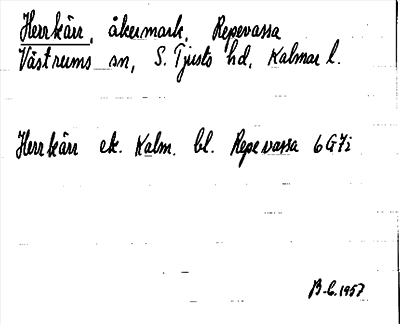 Herrkärr, åkermark, Repevassa
Västrums sn, S. Tjusts hd, Kalmar l.
Herrkärr ek. Kalm. bl. Repevassa 6G7i
B-G. 1957